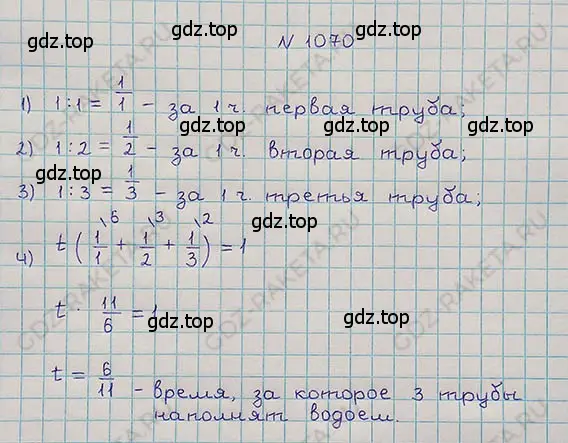 gdz.top
gdz.top
N 1070
1) 1:1 = 1/1 - за 1 ч. первая труба;
gdz.top
gdz.top
2) 1:2 = 1/2 - за 1 ч. вторая труба;
gdz.top
gdz.top
3) 1:3 = 1/3 - за 1 ч. третья труба;
4) t (1/1\6 + 1/2\3 + 1/3\2) = 1
gdz.top
t · 11/6 = 1
gdz.top
gdz.top
t = 6/11 - время, за которое 3 трубы
наполнят водоем.
gdz.top
gdz.top
GDZ-RAKETA.RU